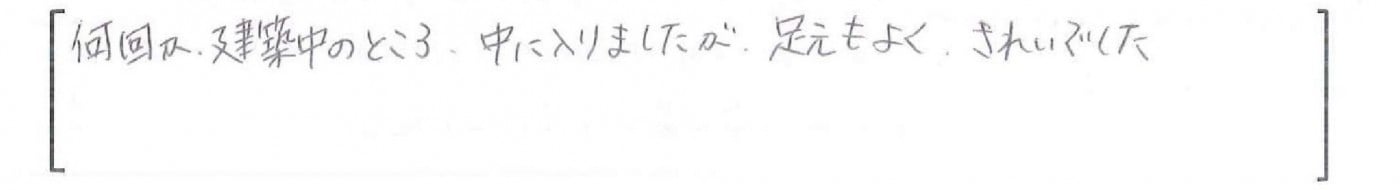 何回か、建築中のところ、中に入りましたが、足元もよく、きれいでした